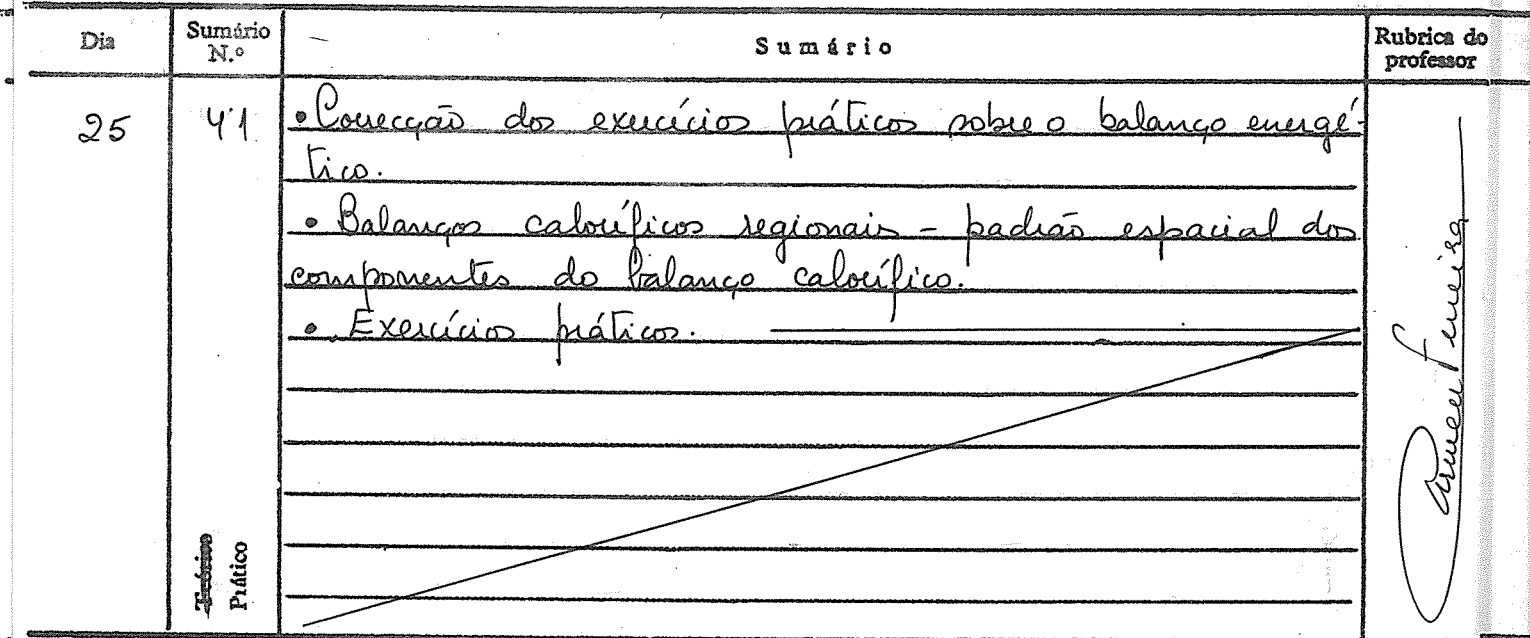 Dia
Sumário N.º
Sumário
Rubrica do professor
25
41
• Correcção dos exercícios práticos sobre o balanço energé-
tico.
• Balanços caloríficos regionais – padrão espacial dos
componentes do balanço calorífico.
• Exercícios práticos.
Teórico
Prático
Ferreira